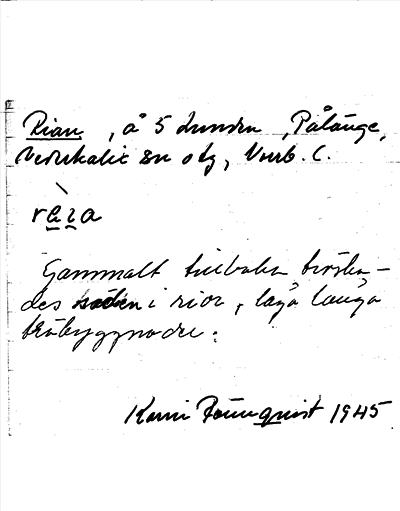 Rian, å 5 Lunden, Pålänge,
Nederkalix sn obg, Vnrb. C.
rèza
Gammalt tillbaka tröska-
des säden i rior, låga långa
träbyggnader.
Karin Rönnquist 1945